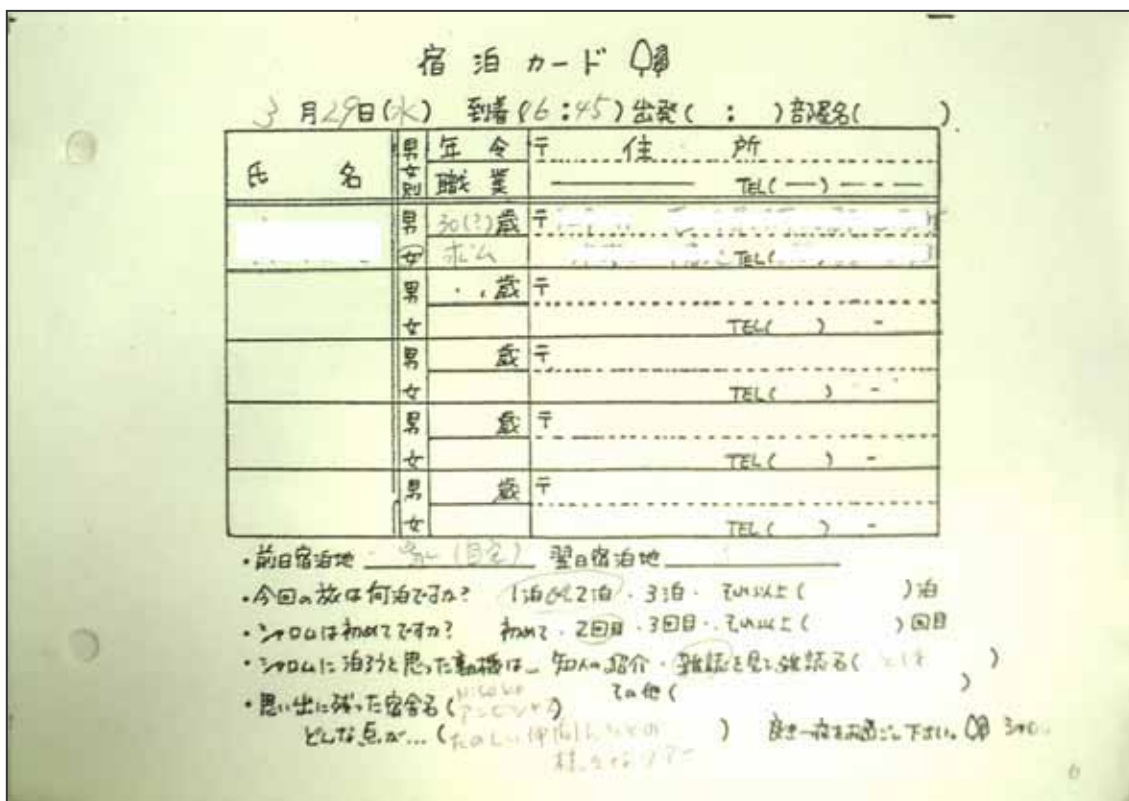 宿泊カード
3月29日(水) 到着(16:45)出発( : )部屋名( )
氏 名 男女別 年令 〒 住 所
職業 TEL( ー ) ー - ー
男 30(?)歳 〒
女 TEL(
男 歳 〒
女 TEL( ) -
男 歳 〒
女 TEL( ) -
男 歳 〒
女 TEL( ) -
男 歳 〒
女 TEL( ) -
・前日宿泊地 (自宅) 翌日宿泊地
・今回の旅は何泊ですか? 1泊 2泊・3泊・それ以上( )泊
・シャロムは初めてですか? 初めて・2回目・3回目・それ以上( )回目
・シャロムに泊ろうと思った動機は… 知人の紹介・雑誌を見て 雑誌名( )
その他( )
・思い出に残った宿舎名( )
どんな点が…(たのしい仲間 ) 良き一夜をお過ごし下さい。